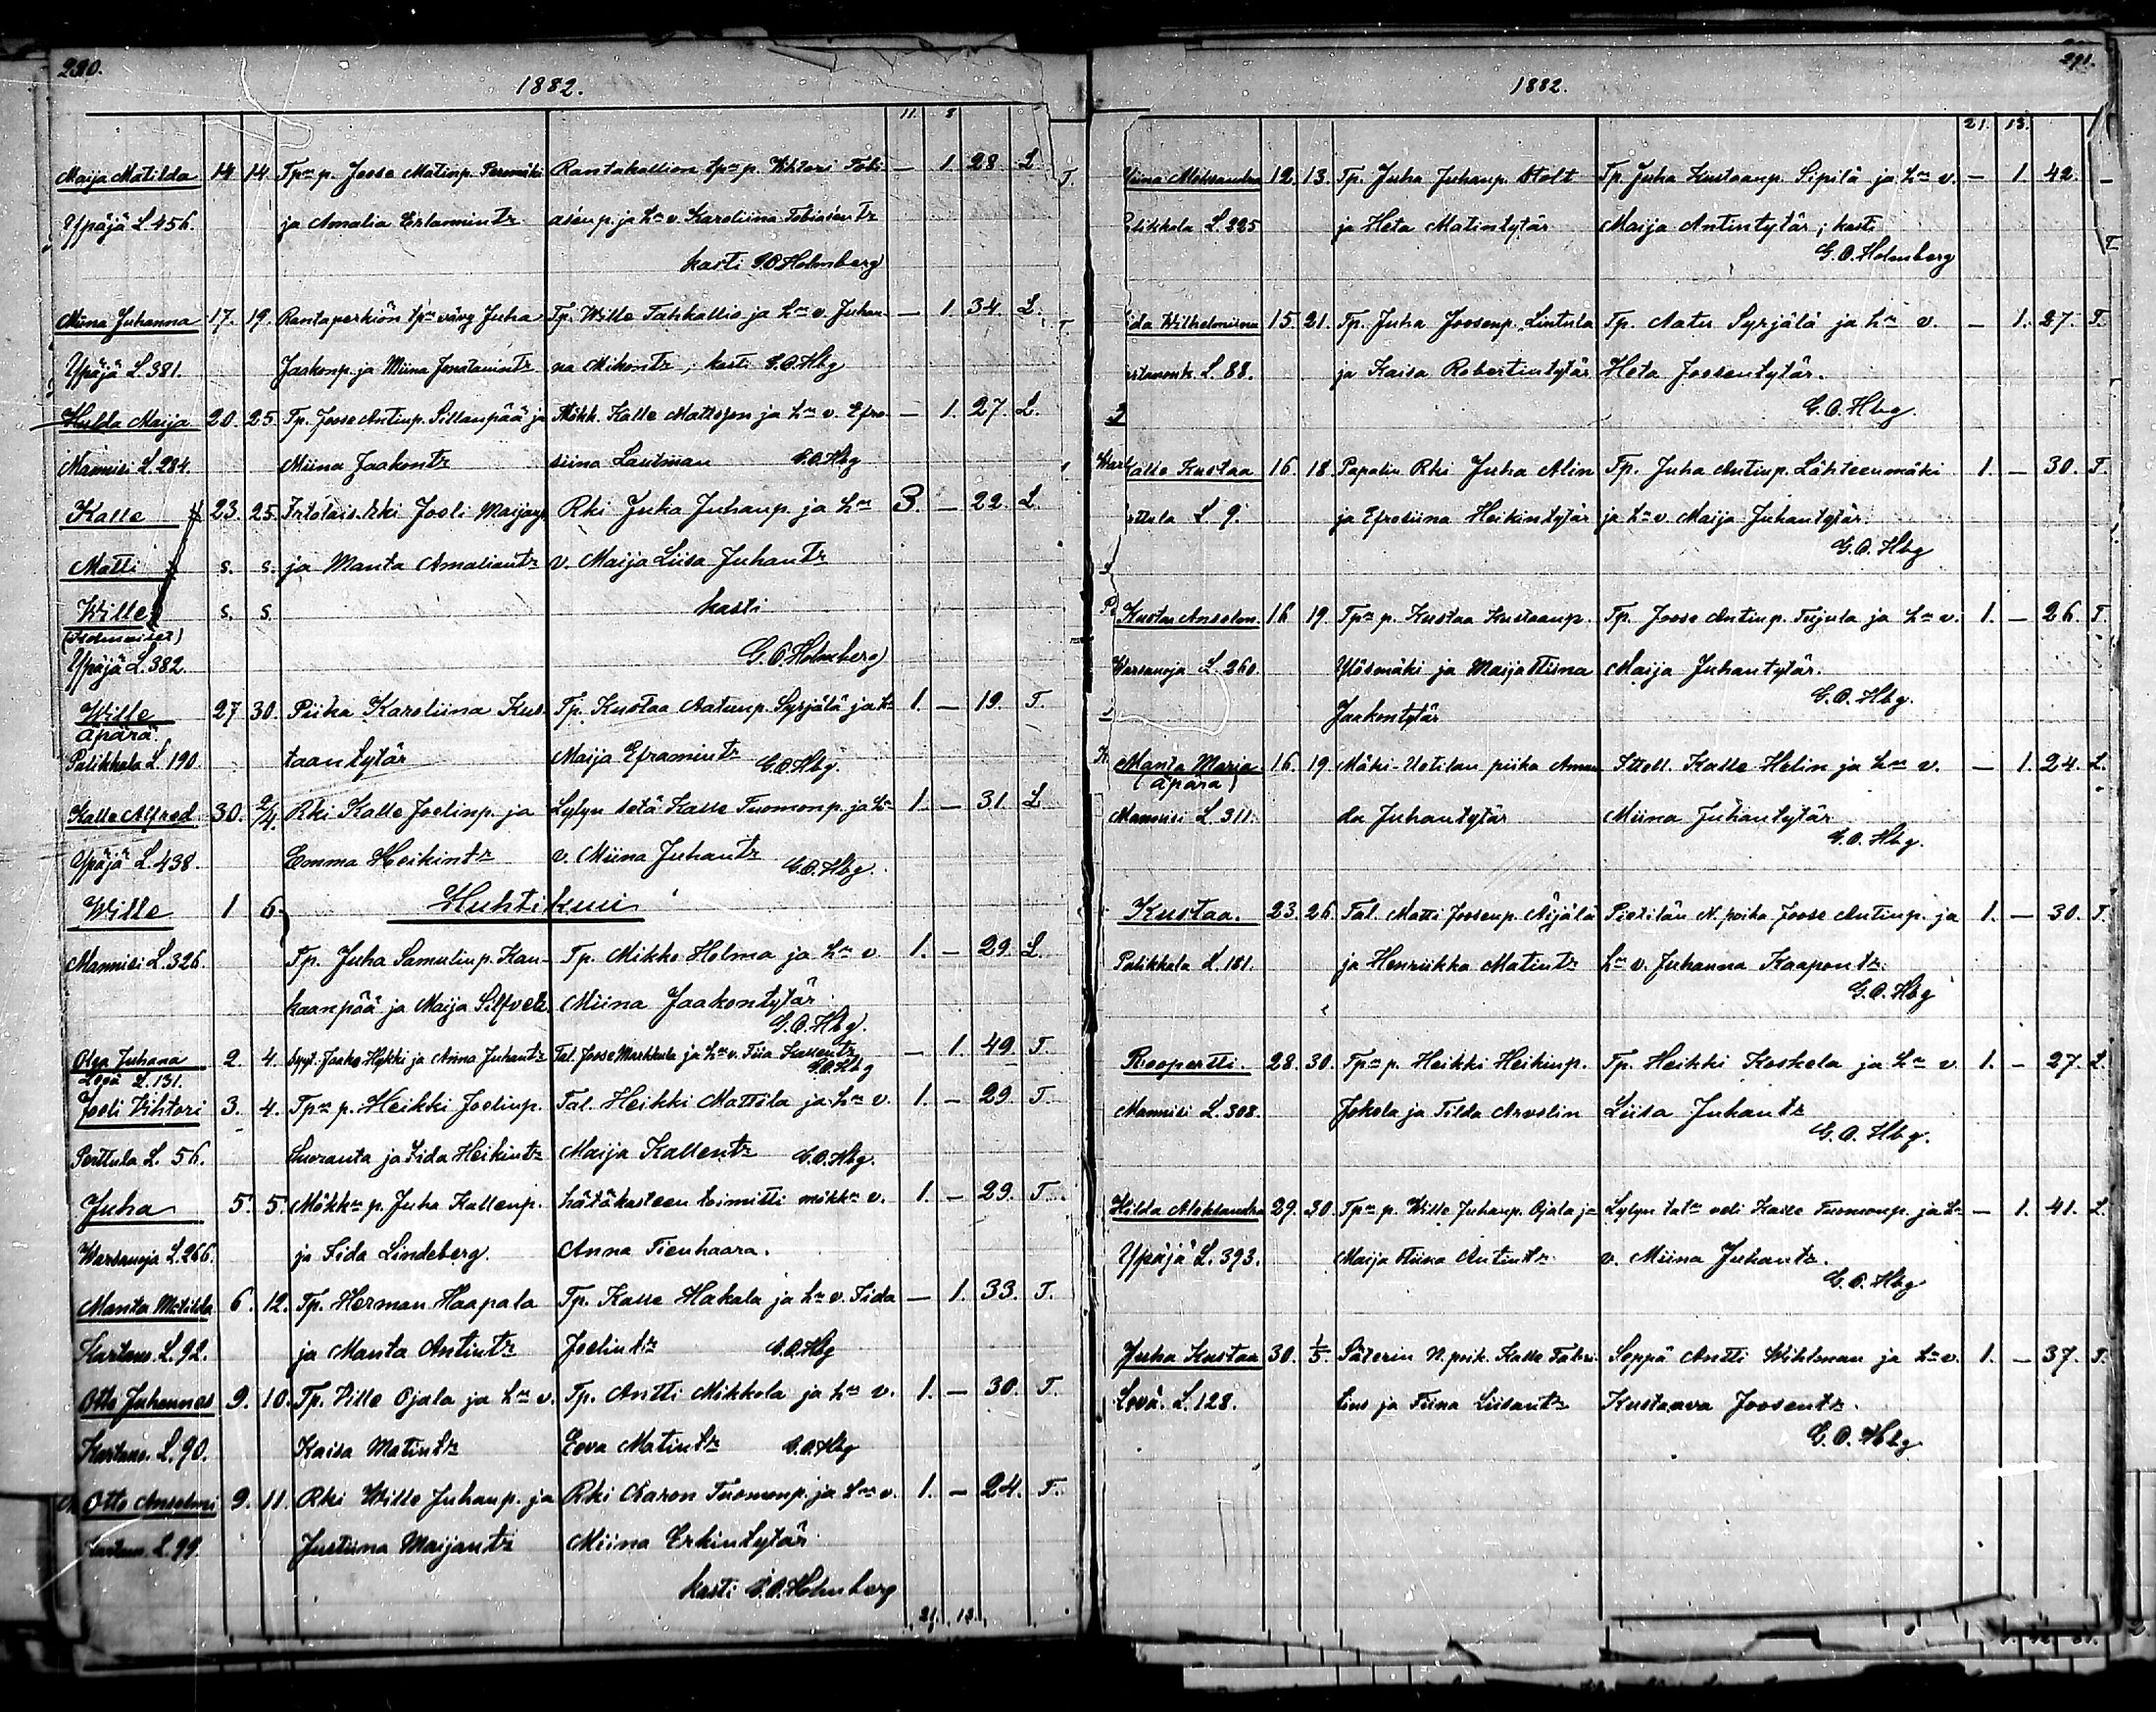 290.
1882.
11. 8
Maija Matilda 14 14 Tpn p. Joose Matinp. Peremäki Rantakallion tpn p. Vihtori Tobi- — 1. 28. L
Ypäjä L. 456. ja Amalia Erlamintr asenp. ja hn v. Karoliina Tobiasentr
kasti G.O. Holmberg
Miina Juhanna 17. 19. Rantaperkiön tpn vävy Juha Tp. Wille Tahkallio ja hn v. Juhan- — 1. 34. L.
Ypäjä L. 381. Jaakonp. ja Miina Jonatanintr na Mikontr, kasti G.O. Hbg
Hulda Maija 20. 25 Tp. Joose Antinp. Sillanpää ja Mökk. Kalle Mattsson ja hn v. Efro- — 1. 27. L.
Mannisi L. 284 Miina Jaakontr siina Lautman G.O. Hbg
Kalle 23. 25. Irtolais. Rki Joeli Maijanp. Rki Juha Juhanp ja hn 3. — 22. L.
Matti s. s. ja Manta Amaliantr v. Maija Liisa Juhantr
Wille s. s. kasti
(Kolmoiset)
Ypäjä L. 382. G.O. Holmberg
Wille 27 30. Piika Karoliina Kus- Tp. Kustaa Aatunp. Syrjälä ja hn 1. — 19. T.
äpärä.
Palikkala L. 190. taantytär Maija Eframintr G.O. Hbg.
Kalle Alfred 30. 2/4. Rki Kalle Joelinp. ja Lylyn setä Kalle Tuomonp. ja hn 1. — 31 L
Ypäjä L. 438. Emma Heikintr v. Miina Juhantr G.O. Hbg.
Huhtikuu
Wille 1 6
Mannisi L. 326. Tp. Juha Samulinp. Kau- Tp. Mikko Holma ja hn v 1. — 29. L.
kaanpää ja Maija Silfver Miina Jaakontytär
G.O. Hbg.
Olga Juhana 2. 4. Jaako Hykki ja Anna Juhantr Tal. Joose Markkula ja hn v. Tiia Kallentr — 1. 49. T.
Levä L. 131. G.O. Hbg
Joeli Vihtori 3. 4. Tpn p. Heikki Joelinp. Tal. Heikki Mattila ja hn v. 1. — 29. T.
Perttula L. 56. Suoranta ja Fida Heikintr Maija Kallentr G.O. Hbg.
Juha 5. 5. Mökkn p. Juha Kallenp. hätäkasteen toimitti mökkn v. 1. — 29. T.
Warsanoja L. 266. ja Fida Lindeberg. Anna Tienhaara.
Manta Matilda 6. 12. Tp. Herman Haapala Tp. Kalle Hakala ja hn v. Fida — 1. 33. T.
Kartano. L. 92. ja Manta Antintr Joelintr G.O. Hbg
Otto Juhannes 9. 10. Tp. Ville Ojala ja hn v. Tp. Antti Mikkola ja hn v. 1. — 30. T.
Kartano. L. 90. Kaisa Matintr Eeva Matintr G.O. Hbg
Otto Anselmi 9. 11. Rki Wille Juhanp. ja Rki Aaron Tuomonp. ja hn v. 1. — 24. T.
Kartano. L. 99. Justiina Maijantr Miina Erkintytär
kasti G.O. Holmberg
21. 13.
291.
1882.
21. 13.
Miina Aleksandra 12. 13. Tp. Juha Juhanp. Stolt Tp. Juha Kustaanp. Sipilä ja hn v. — 1. 42.
Palikkala L. 225 ja Heta Matintytär Maija Antintytär; kasti
G.O. Holmberg
Iida Wilhelmiina 15. 21. Tp. Juha Joosenp. Lintula Tp. Aatu Syrjälä ja hn v. — 1. 27. T.
L. 88. ja Kaisa Robertintytär Heta Joosentytär.
G.O. Hbg.
Kalle Kustaa 16. 18 Papalin Rki Juha Alin Tp. Juha Antinp. Lähteenmäki 1. — 30. T.
Perttula L. 9. ja Efrosiina Heikintytär ja hn v. Maija Juhantytär.
G.O. Hbg
Kustaa Anselm 16 19. Tpn p. Kustaa Kustaanp. Tp. Joose Antinp. Tujula ja hn v. 1. — 26. T.
Warsanoja L. 260. Ylösmäki ja Maija Stiina Maija Juhantytär.
Jaakontytär G.O. Hbg.
Manta Maria 16. 19 Mäki-Uotilan piika Aman- Ittell. Kalle Helin ja hn v. — 1. 24. L.
(äpärä)
Mannisi L. 311. da Juhantytär Miina Juhantytär
G.O. Hbg.
Kustaa. 23. 26. Tal. Matti Joosenp. Äijälä Pietilän N. poika Joose Antinp. ja 1. — 30. T.
Palikkala L. 181. ja Henriikka Matintr hn v. Juhanna Kaapontr.
G.O. Hbg
Roopertti. 28. 30. Tpn p. Heikki Heikinp. Tp. Heikki Koskela ja hn v 1. — 27. L.
Mannisi L. 308. Jokela ja Tilda Arvelin Liisa Juhantr
G.O. Hbg.
Hilda Aleksandra 29. 30. Tpn p. Wille Juhanp. Ojala ja Lylyn taln veli Kalle Tuomonp. ja hn — 1. 41. L.
Ypäjä L. 393. Maija Stiina Antintr v. Miina Juhantr.
G.O. Hbg
Juha Kustaa 30. 1/5. Säterin N. poik. Kalle Fabri- Seppä Antti Wihlman ja hn v. 1. — 37. T.
Levä. L. 128. tius ja Tiina Liisantr Kustaava Joosentr.
G.O. Hbg